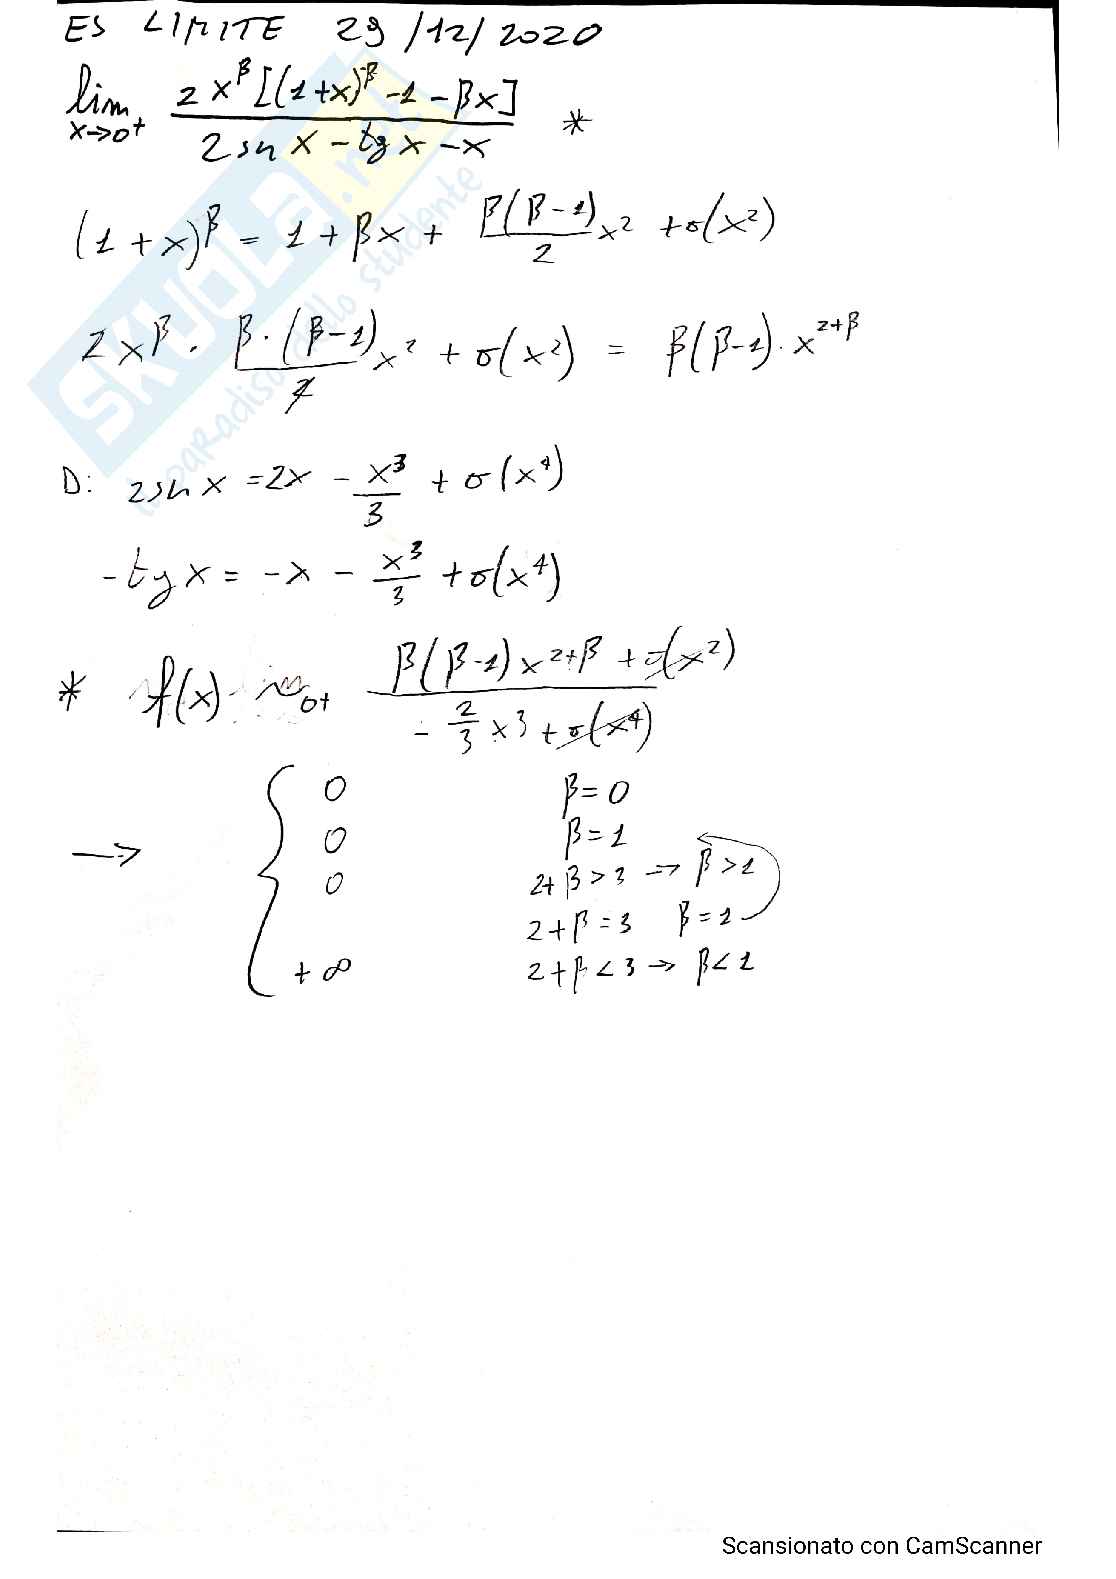 ES LIMITE 29/12/2020
lim x→0+ 2x^β[(1+x)^β-1-βx] / 2sn x - tg x - x *
(1+x)^β = 1+βx+ β(β-1)/2 x² +σ(x²)
2x^β · β·(β-1)/2 x² + σ(x²) = β(β-1)·x^2+β
D: 2sn x =2x - x³/3 + σ(x⁴)
-tg x = -x - x³/3 +σ(x⁴)
* f(x) ~ 0+ β(β-1)x^2+β +σ(x²) / -2/3 x³ +σ(x⁴)
→ { 0 β=0
0 β=1
0 2+β>3 → β>1
2+β=3 β=1
+∞ 2+β<3 → β<1
SKUOLA.net
il paradiso dello studente
Scansionato con CamScanner